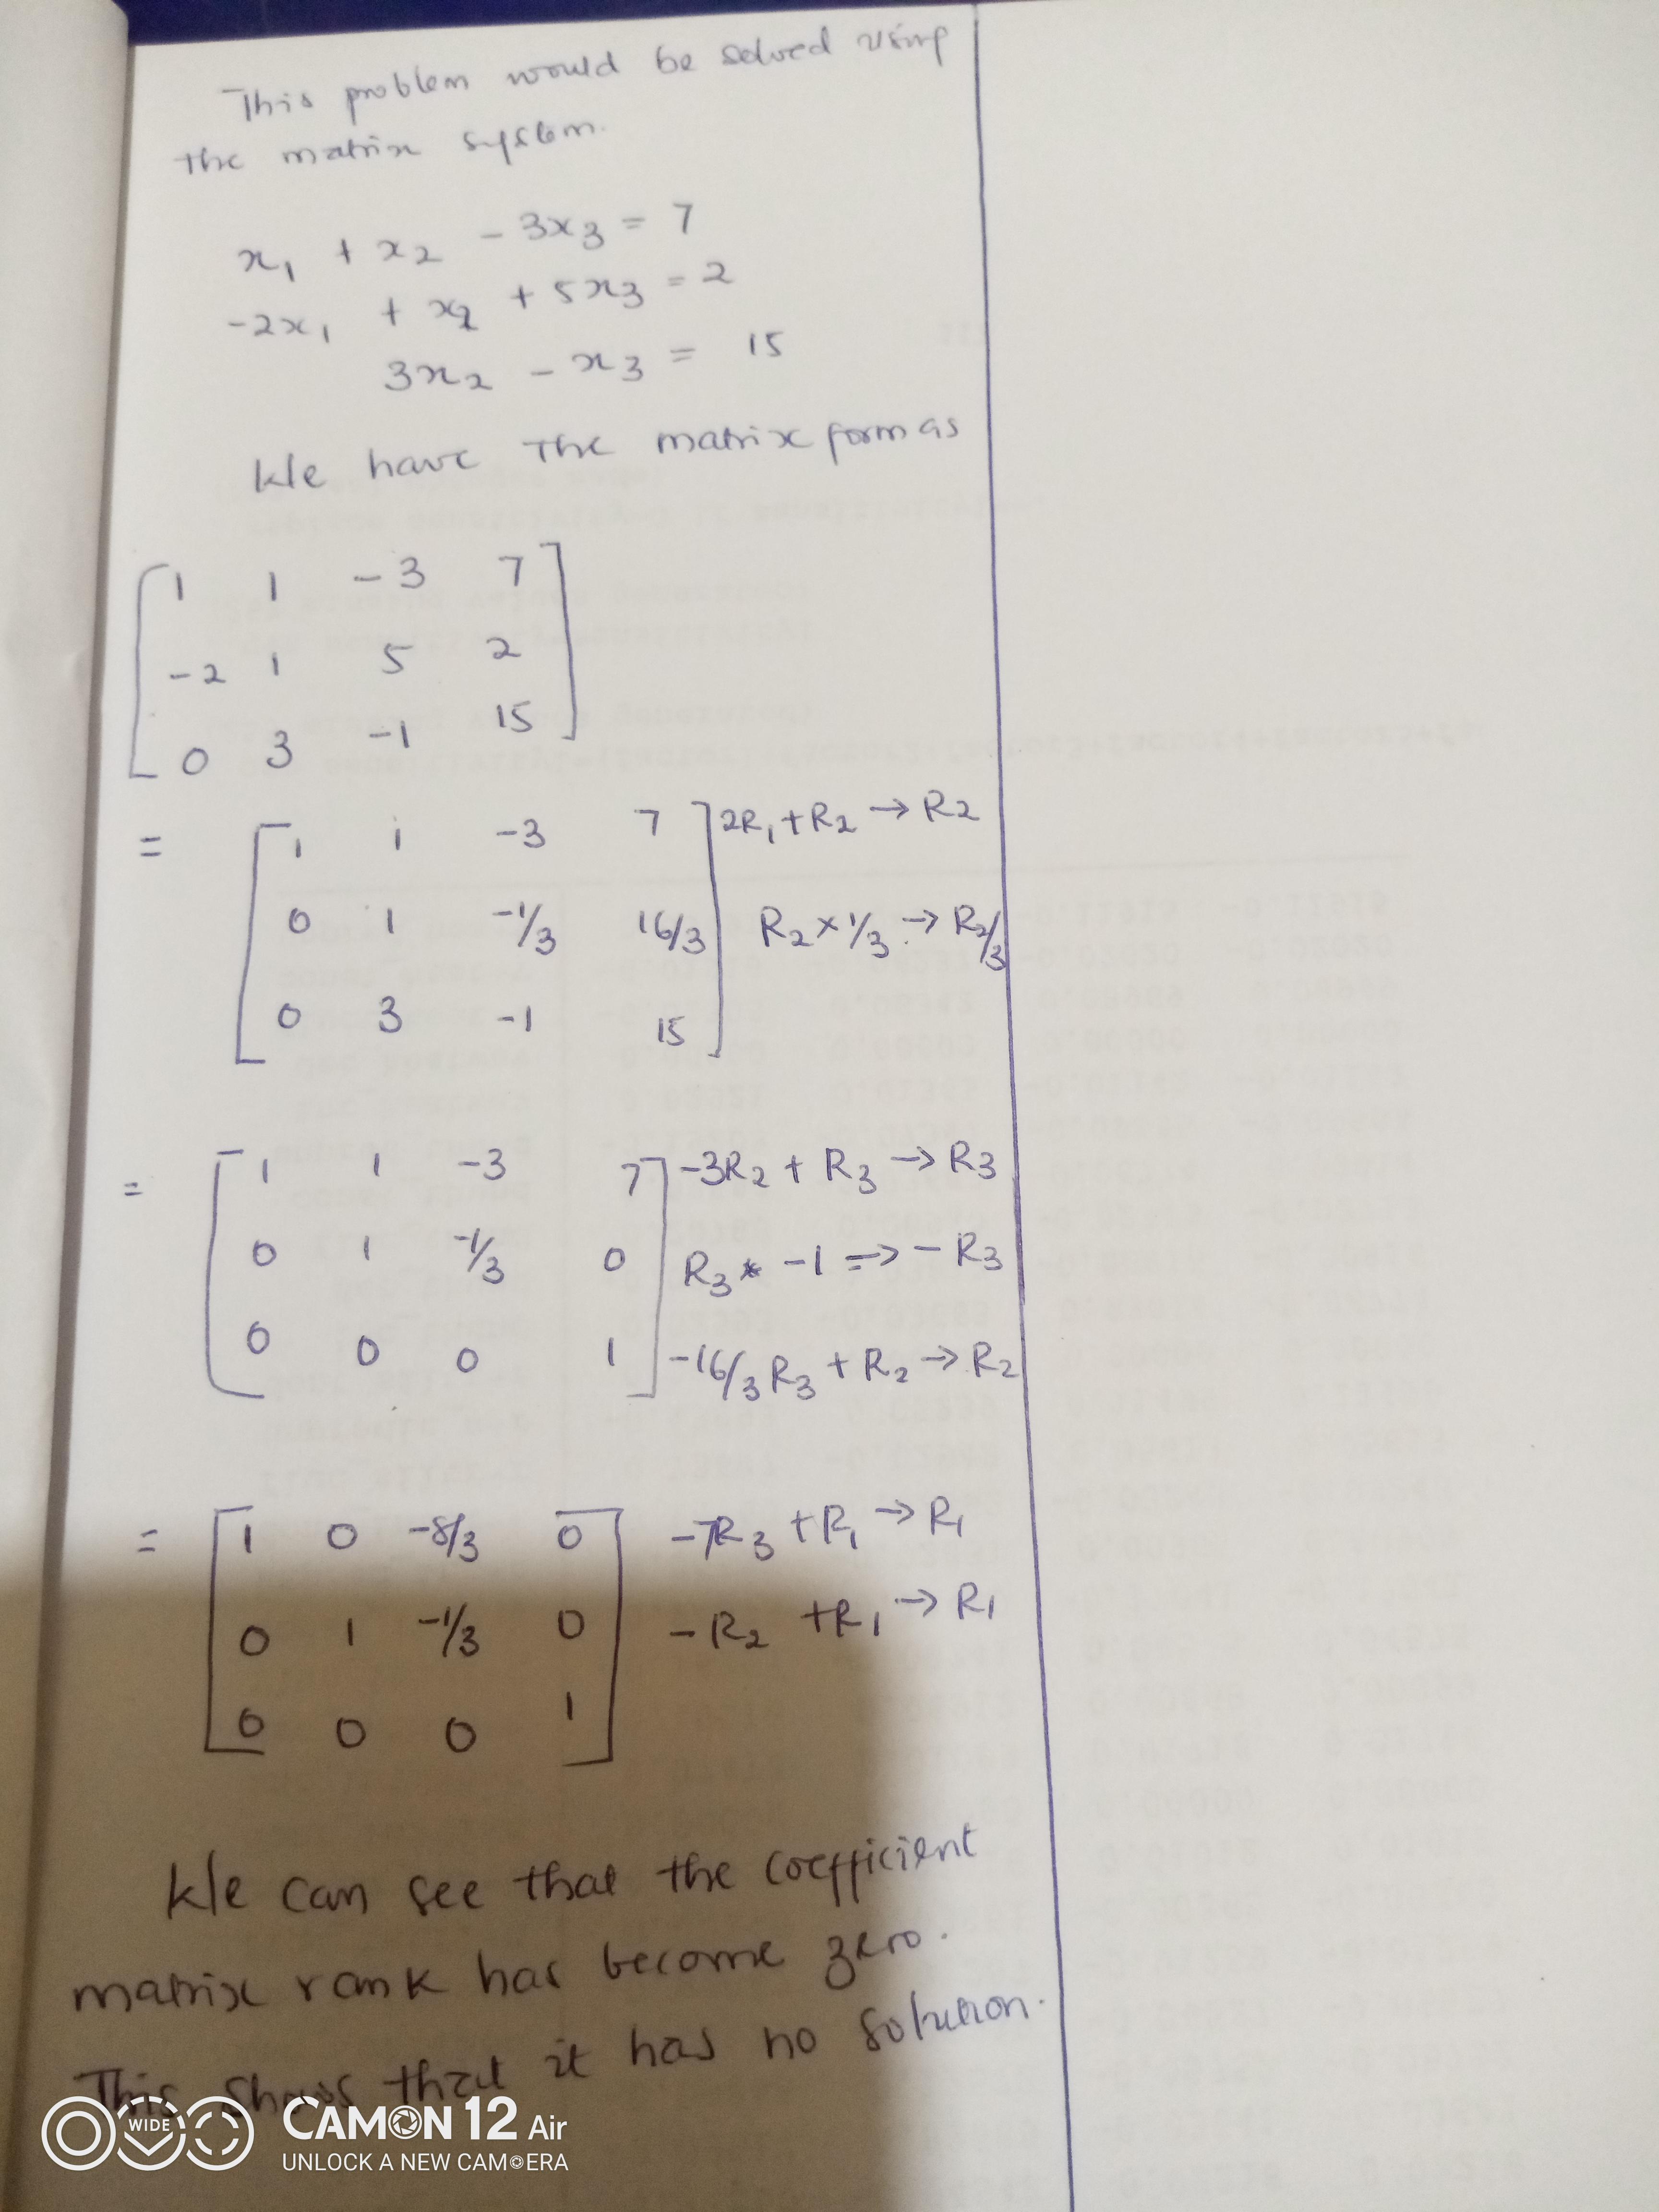 This problem would be solved using
the matrix system.
x₁ + x₂ - 3x₃ = 7
-2x₁ + x₂ + 5x₃ = 2
3x₂ - x₃ = 15
We have the matrix form as
1 1 -3 7
-2 1 5 2
0 3 -1 15
= 1 1 -3 7 2R₁ + R₂ → R₂
0 1 -1/3 16/3 R₂ × 1/3 → R₂/3
0 3 -1 15
= 1 1 -3 7 -3R₂ + R₃ → R₃
0 1 -1/3 0 R₃ * -1 => -R₃
0 0 0 1 -16/3 R₃ + R₂ → R₂
= 1 0 -8/3 0 -7R₃ + R₁ → R₁
0 1 -1/3 0 -R₂ + R₁ → R₁
0 0 0 1
We can see that the coefficient
matrix rank has become zero.
This shows that it has no solution.
WIDE
CAMON 12 Air
UNLOCK A NEW CAMERA